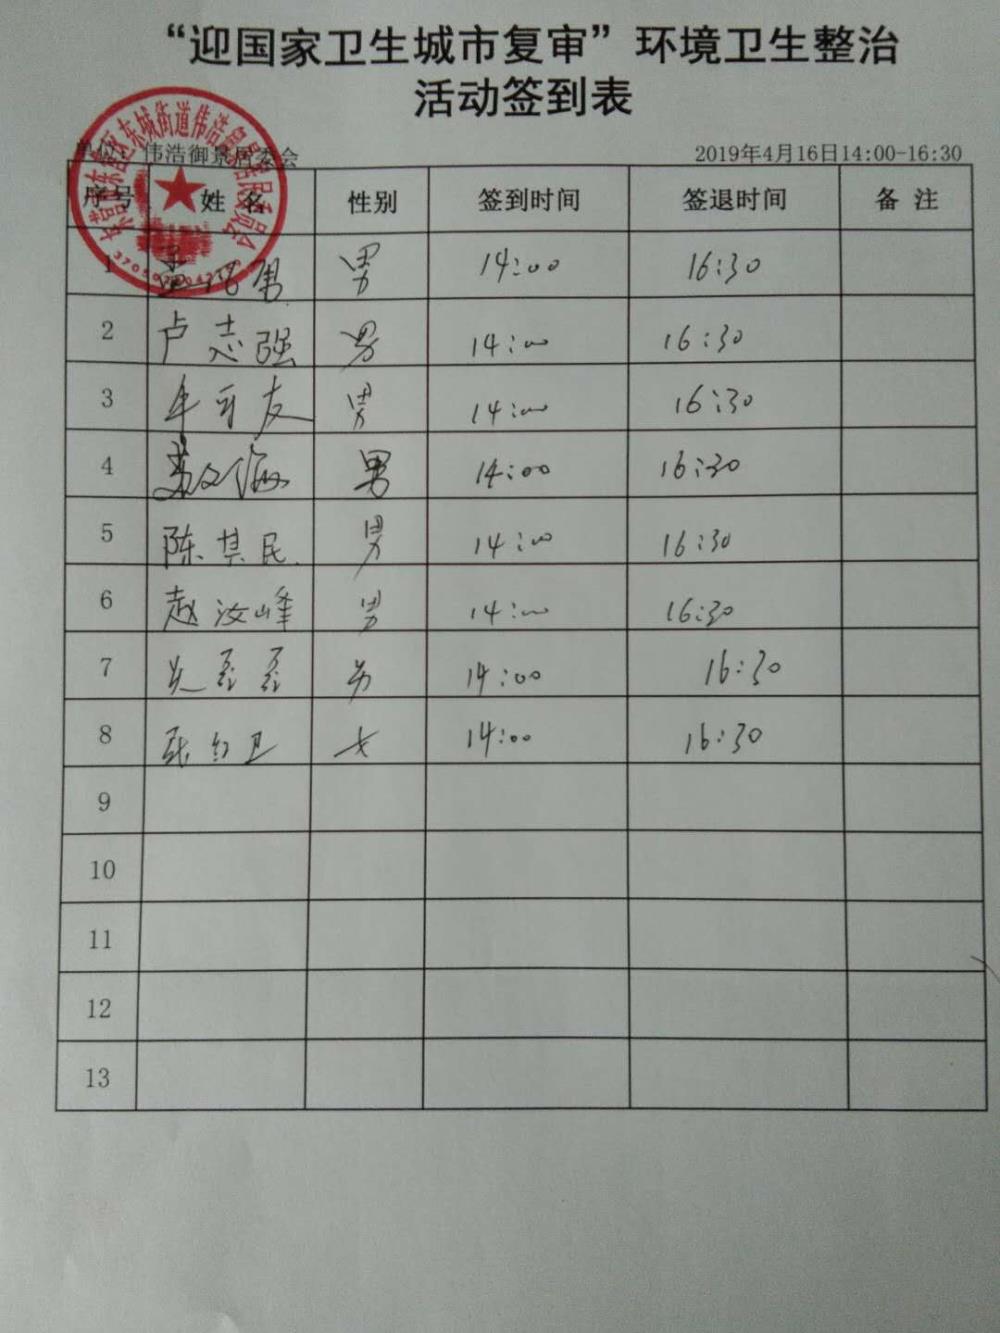 “迎国家卫生城市复审”环境卫生整治
活动签到表
单位：伟浩御景居委会 2019年4月16日14:00-16:30
序号 姓 名 性别 签到时间 签退时间 备 注
1 男 14:00 16:30
2 卢志强 男 14:00 16:30
3 男 14:00 16:30
4 男 14:00 16:30
5 陈其民 男 14:00 16:30
6 赵汝峰 男 14:00 16:30
7 14:00 16:30
8 张红卫 女 14:00 16:30
9
10
11
12
13